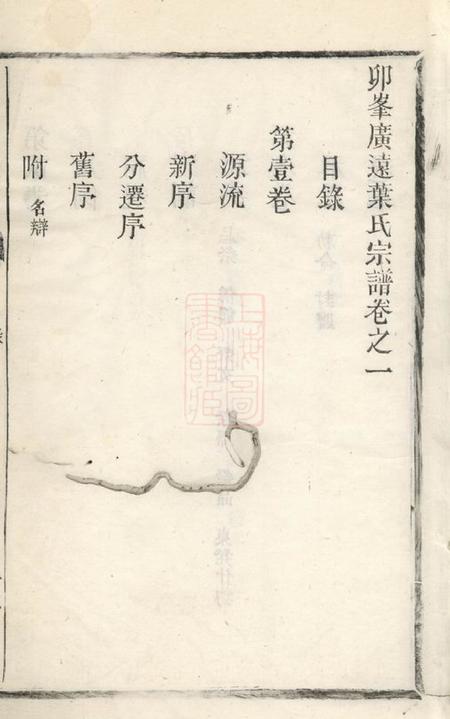 卯峯廣遠葉氏宗譜卷之一
目錄
第壹卷
源流
新序
分遷序
舊序
附名辯
上海圖書館藏